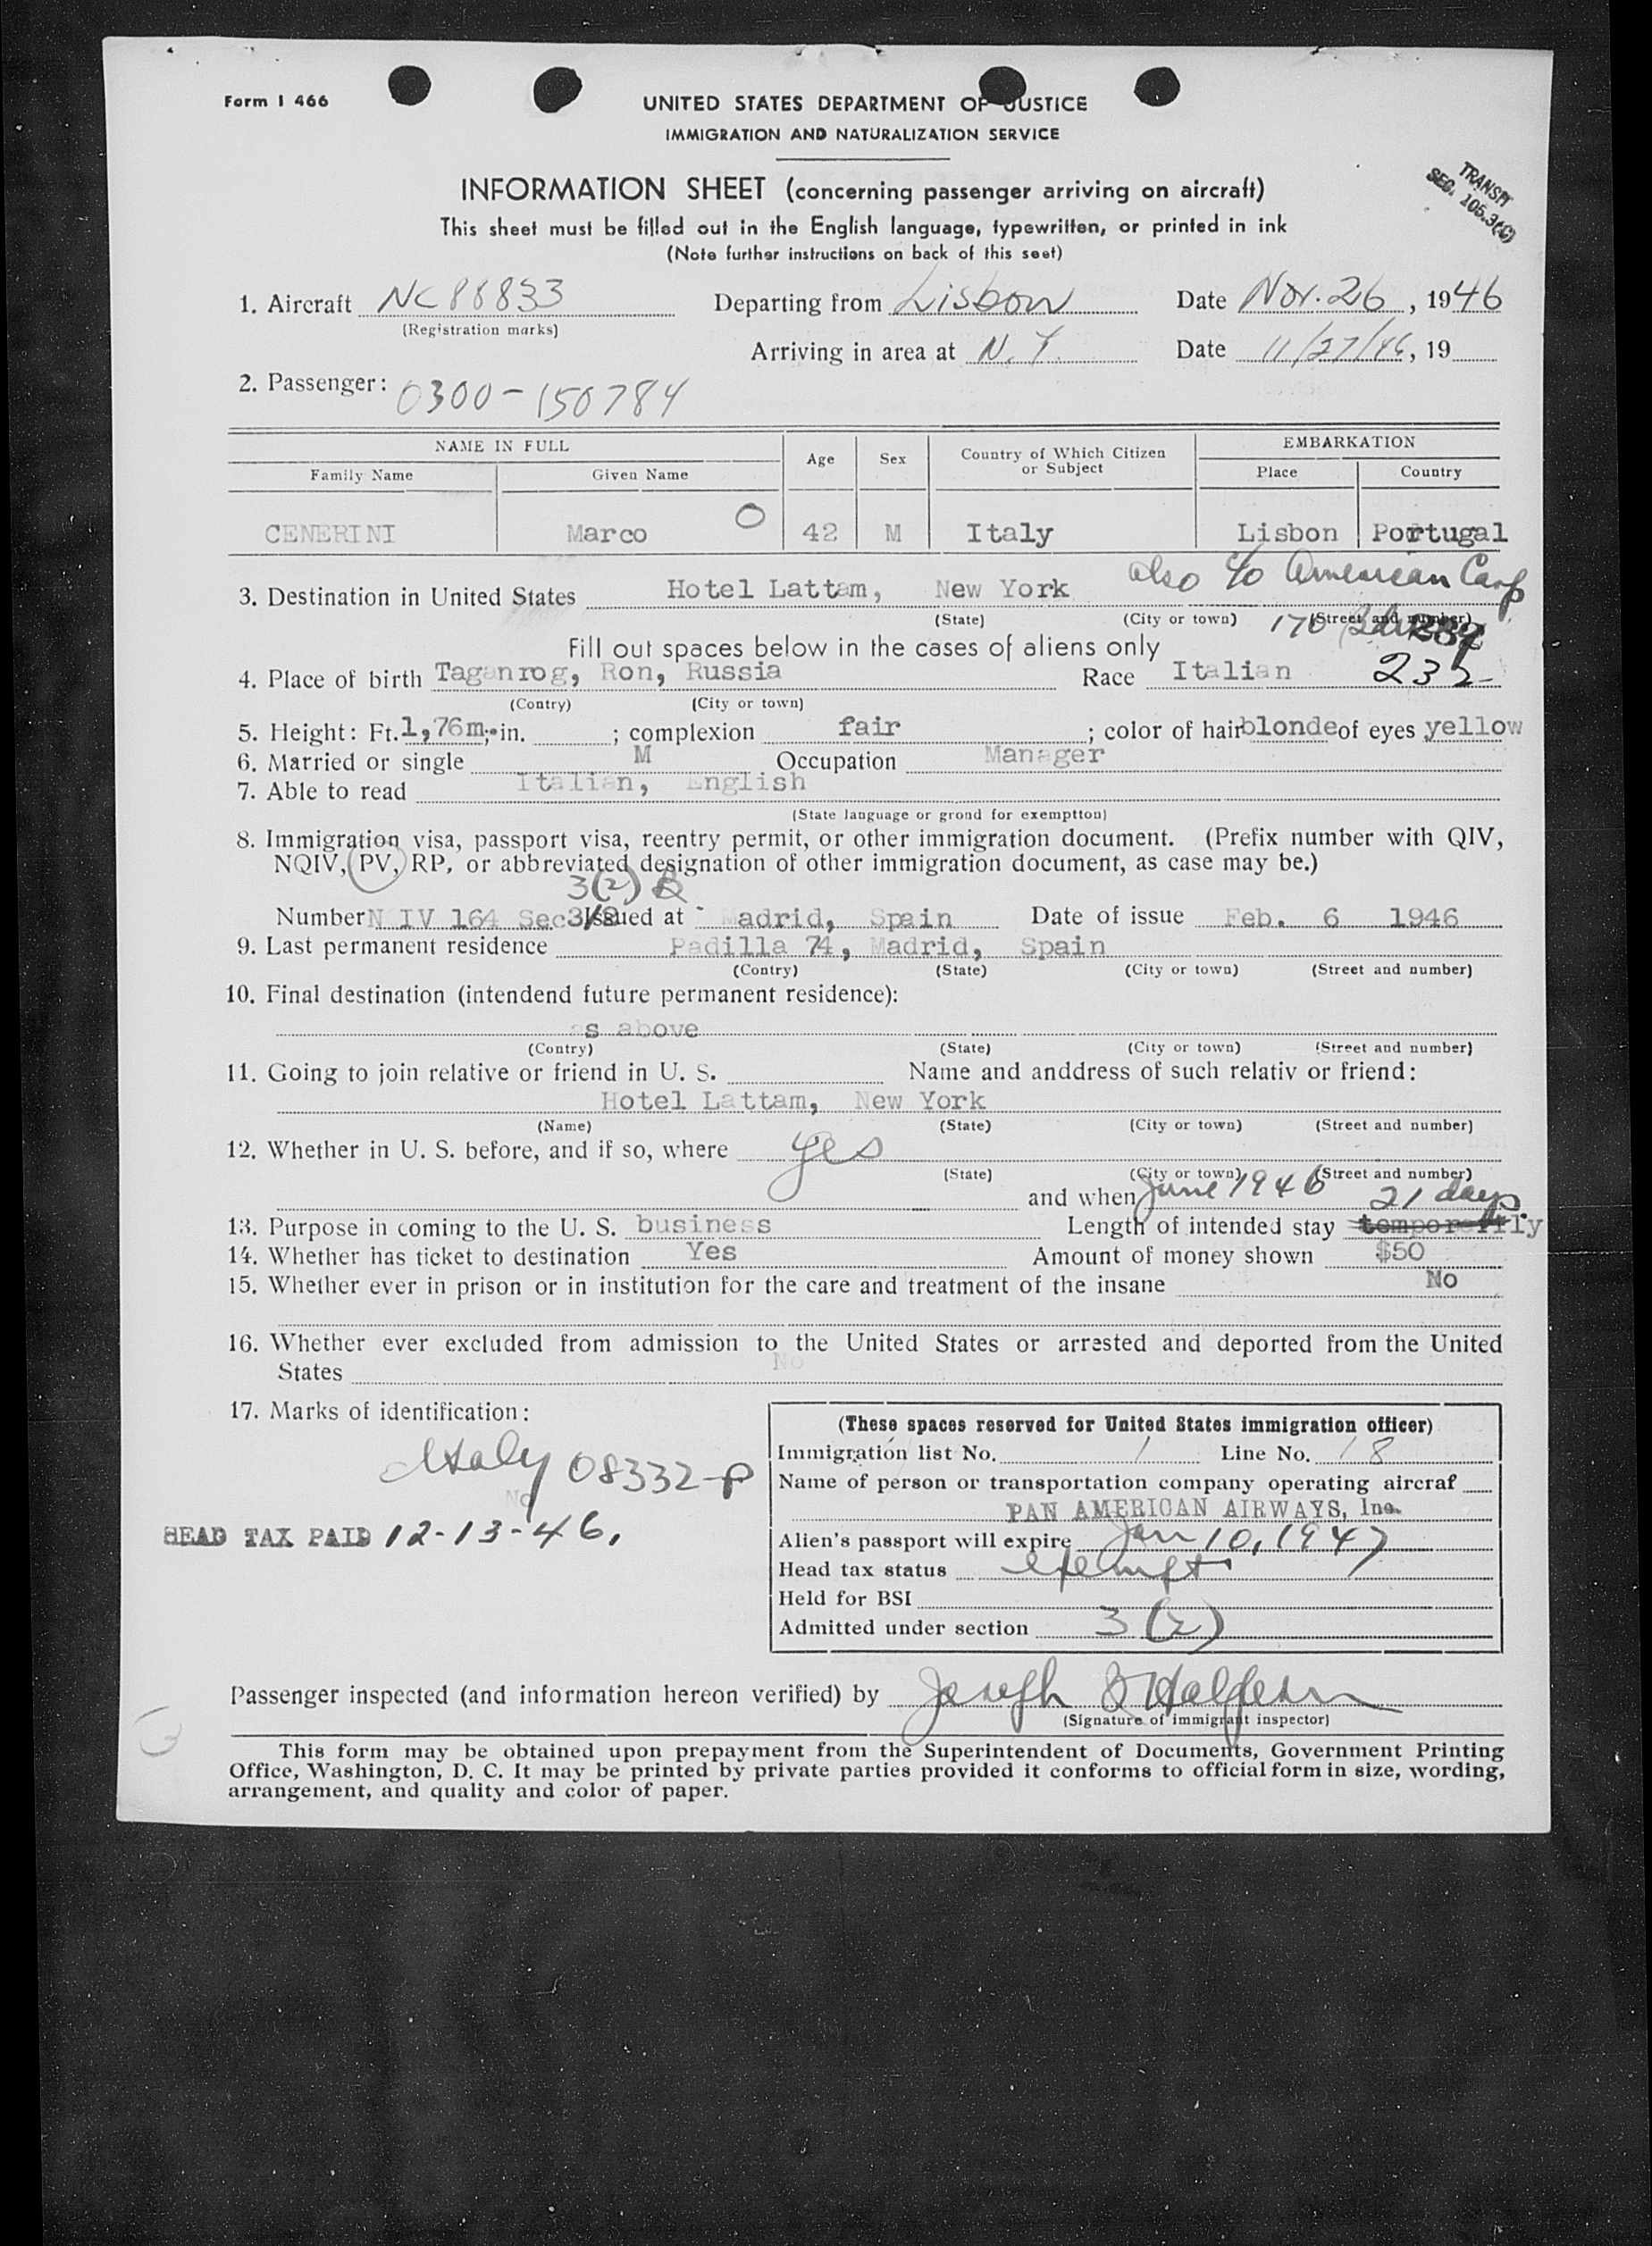 Form I 466
UNITED STATES DEPARTMENT OF JUSTICE
IMMIGRATION AND NATURALIZATION SERVICE
INFORMATION SHEET (concerning passenger arriving on aircraft)
TRANSIT
SEC. 105.3(C)
This sheet must be filled out in the English language, typewritten, or printed in ink
(Note further instructions on back of this seet)
1. Aircraft NC88833 Departing from Lisbon Date Nov. 26, 1946
(Registration marks)
Arriving in area at N.Y. Date 11/27/46, 19
2. Passenger: 0300-150784
NAME IN FULL Age Sex Country of Which Citizen or Subject EMBARKATION
Family Name Given Name Place Country
CENERINI Marco O 42 M Italy Lisbon Portugal
also c/o American Corp
3. Destination in United States Hotel Lattam, New York
(State) (City or town) (Street and number)
170
Fill out spaces below in the cases of aliens only
4. Place of birth Taganrog, Ron, Russia Race Italian 232
(Contry) (City or town)
5. Height: Ft. 1,76m; in. ; complexion fair ; color of hair blonde of eyes yellow
6. Married or single M Occupation Manager
7. Able to read Italian, English
(State language or grond for exemptton)
8. Immigration visa, passport visa, reentry permit, or other immigration document. (Prefix number with QIV,
NQIV, PV, RP, or abbreviated designation of other immigration document, as case may be.)
3(2)
Number N IV 164 Sec 3/2 Issued at Madrid, Spain Date of issue Feb. 6 1946
9. Last permanent residence Padilla 74, Madrid, Spain
(Contry) (State) (City or town) (Street and number)
10. Final destination (intendend future permanent residence):
as above
(Contry) (State) (City or town) (Street and number)
11. Going to join relative or friend in U. S. Name and anddress of such relativ or friend:
Hotel Lattam, New York
(Name) (State) (City or town) (Street and number)
12. Whether in U. S. before, and if so, where yes
(State) (City or town) (Street and number)
and when June 1946 21 days
13. Purpose in coming to the U. S. business Length of intended stay temporarily
14. Whether has ticket to destination Yes Amount of money shown $50
15. Whether ever in prison or in institution for the care and treatment of the insane No
16. Whether ever excluded from admission to the United States or arrested and deported from the United
States No
17. Marks of identification:
Italy 08332-P
No
HEAD TAX PAID 12-13-46.
(These spaces reserved for United States immigration officer)
Immigration list No. 1 Line No. 18
Name of person or transportation company operating aircraf
PAN AMERICAN AIRWAYS, Inc.
Alien's passport will expire Jan 10, 1947
Head tax status exempt
Held for BSI
Admitted under section 3(2)
Passenger inspected (and information hereon verified) by Joseph
(Signature of immigrant inspector)
This form may be obtained upon prepayment from the Superintendent of Documents, Government Printing
Office, Washington, D. C. It may be printed by private parties provided it conforms to official form in size, wording,
arrangement, and quality and color of paper.